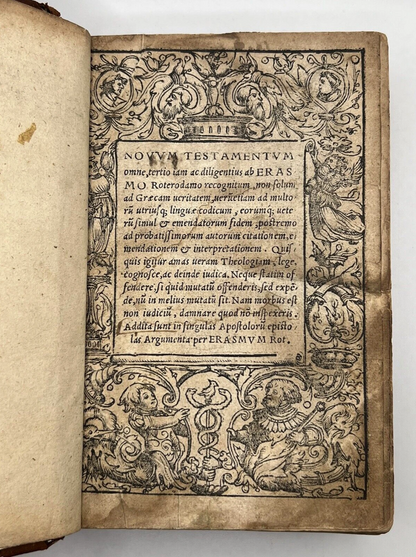 NOVVM TESTAMENTVM
omne, tertio iam ac diligentius ab ERAS
MO Roterodamo recognitum, non solum
ad Græcam ueritatem, uerūetiam ad multo
rū utriusq; linguæ codicum, eorumq; uete
rū simul & emendatorum fidem, postremo
ad probatissimorum autorum citationem, e-
mendationem & interpretationem. Quis
quis igitur amas ueram Theologiam, lege
cognosce, ac deinde iudica. Neque statim of
fendere, si quid mutatū offenderis, sed expē-
de, nū in melius mutatū sit. Nam morbus est
non iudiciū, damnare quod nō inspexeris.
Addita sunt in singulas Apostolorū episto
las Argumenta per ERASMVM Rot.